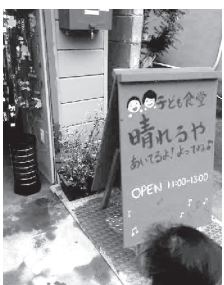 子ども食堂
晴れるや
あいてるよ!よってね♪
OPEN 11:00-13:00